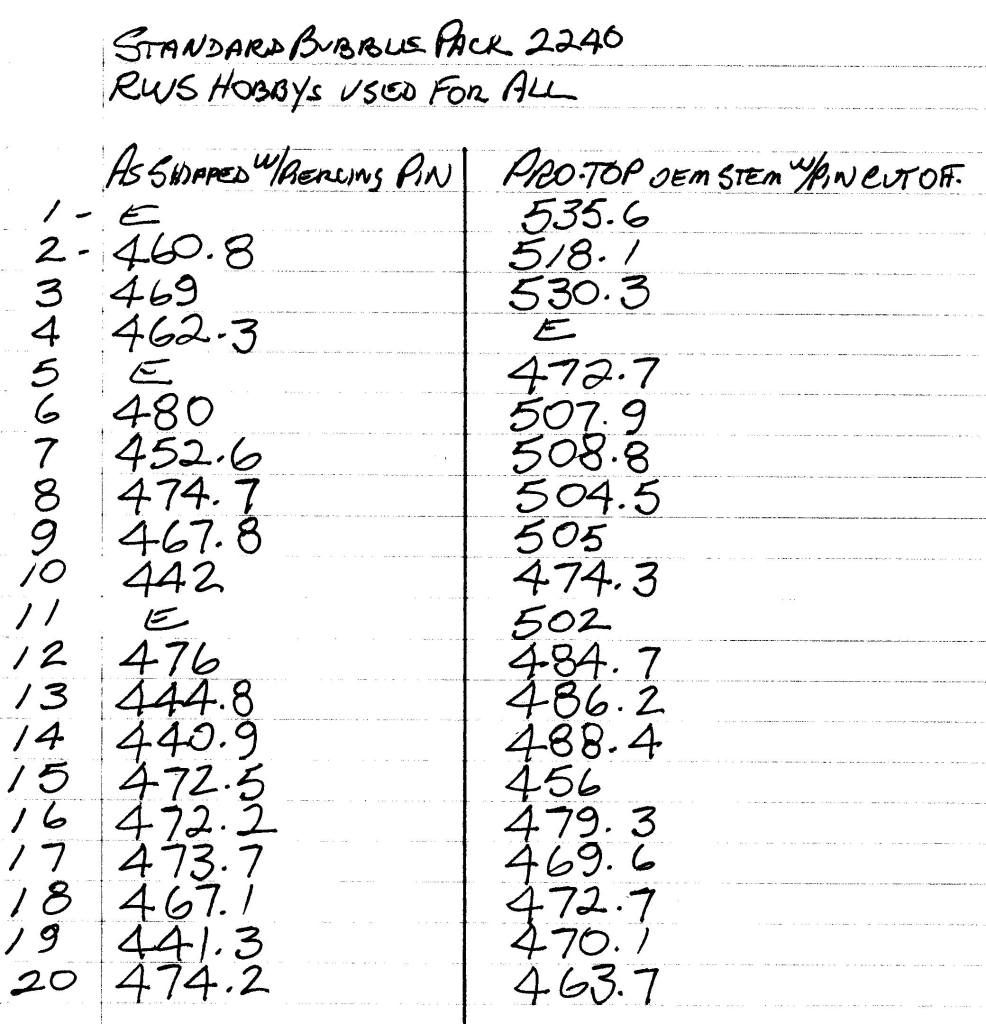 STANDARD BUBBLE PACK 2240
RWS HOBBYS USED FOR ALL
AS SHIPPED W/PIERCING PIN PRO-TOP OEM STEM W/PIN CUT OFF.
1 - E 535.6
2 - 460.8 518.1
3 469 530.3
4 462.3 E
5 E 472.7
6 480 507.9
7 452.6 508.8
8 474.7 504.5
9 467.8 505
10 442 474.3
11 E 502
12 476 484.7
13 444.8 486.2
14 440.9 488.4
15 472.5 456
16 472.2 479.3
17 473.7 469.6
18 467.1 472.7
19 441.3 470.1
20 474.2 463.7